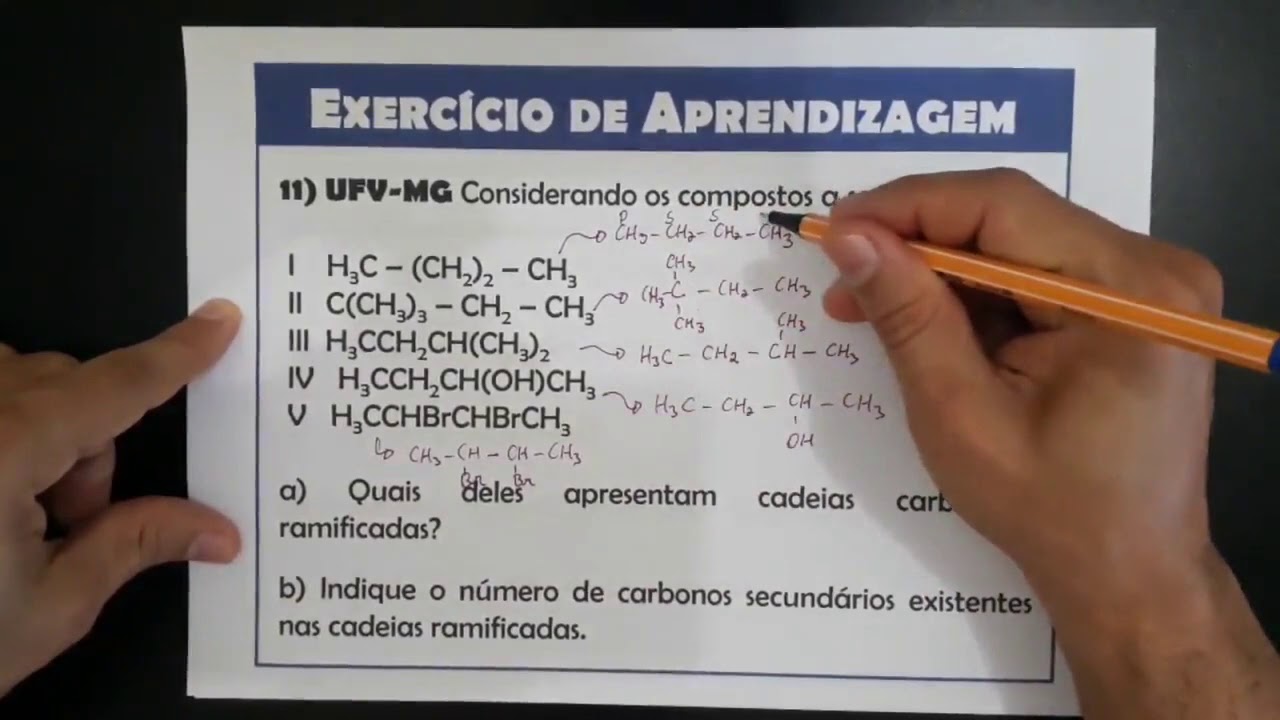 EXERCÍCIO DE APRENDIZAGEM
11) UFV-MG Considerando os compostos a
P S S
CH₃ – CH₂ – CH₂ – CH₃
I H₃C – (CH₂)₂ – CH₃
CH₃
II C(CH₃)₃ – CH₂ – CH₃
CH₃ – C – CH₂ – CH₃
CH₃
CH₃
III H₃CCH₂CH(CH₃)₂
H₃C – CH₂ – CH – CH₃
IV H₃CCH₂CH(OH)CH₃
H₃C – CH₂ – CH – CH₃
OH
V H₃CCHBrCHBrCH₃
CH₃ – CH – CH – CH₃
Br Br
a) Quais deles apresentam cadeias
ramificadas?
b) Indique o número de carbonos secundários existentes
nas cadeias ramificadas.